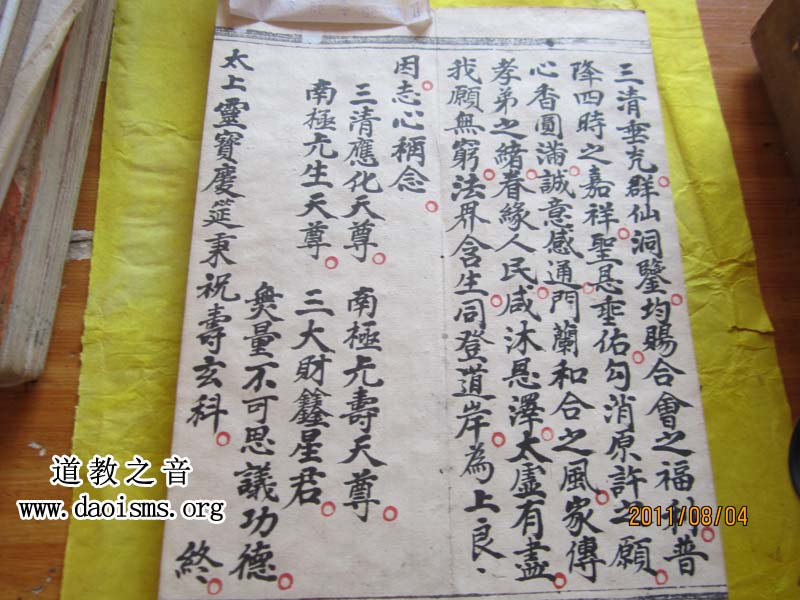 三清垂克群仙洞鑒均賜合會之福利普
降四時之嘉祥聖恩垂佑勾消原許之願
心香圓滿誠意感通門蘭和合之風家傳
孝弟之緒眷緣人民咸沐恩澤太虛有盡
我願無窮法界含生同登道岸為上良、
因志心稱念
三清應化天尊 南極亢壽天尊
南極亢生天尊 三大財鑫星君
無量不可思議功德
太上靈寶慶筵秉祝壽玄科 終
道教之音
www.daoisms.org
2011/08/04